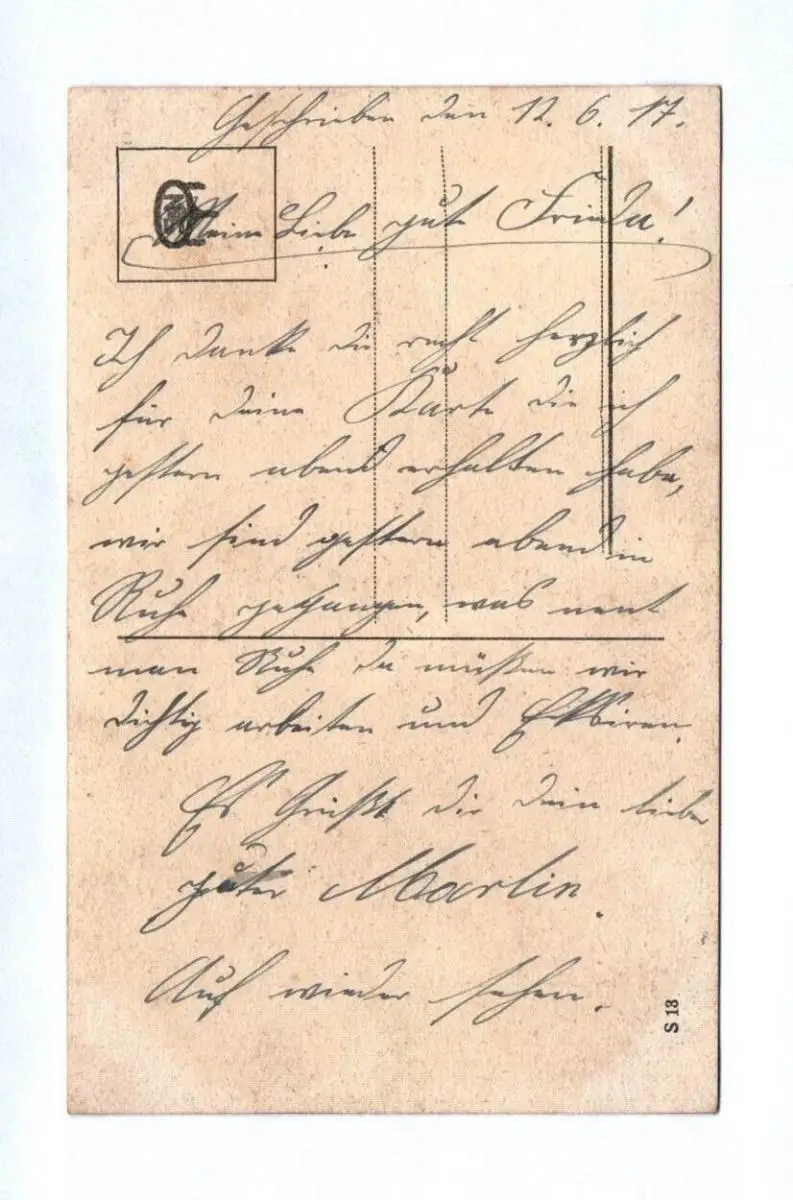 Geschrieben den 12. 6. 17.
Meine Liebe gute Frieda!
Ich danke dir recht herzlich
für deine Karte die ich
gestern abend erhalten habe,
wir sind gestern abend in
Ruhe gegangen, was nent
man Ruhe da müßen wir
dichtig arbeiten und
Es Grüßt dir dein lieber
guter Martin.
Auf wieder sehen.
S 13